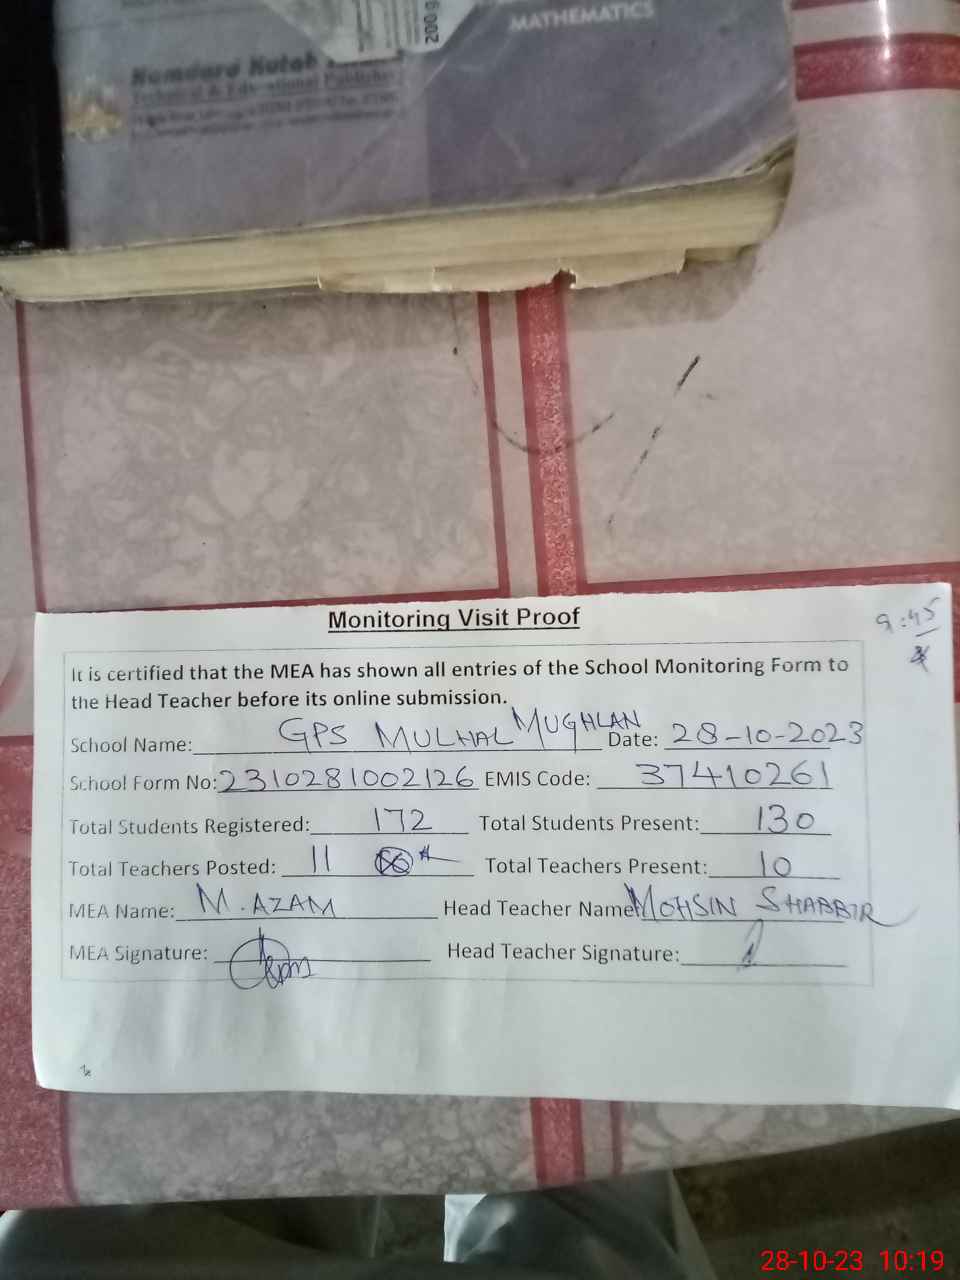 MATHEMATICS
Hamdard Kutab
Technical & Educational Publisher
Monitoring Visit Proof
9:45
It is certified that the MEA has shown all entries of the School Monitoring Form to
the Head Teacher before its online submission.
School Name: GPS MULHAL MUGHLAN Date: 28-10-2023
School Form No: 2310281002126 EMIS Code: 37410261
Total Students Registered: 172 Total Students Present: 130
Total Teachers Posted: 11 Total Teachers Present: 10
MEA Name: M. AZAM Head Teacher Name: MOHSIN SHABBIR
MEA Signature: Head Teacher Signature:
28-10-23 10:19